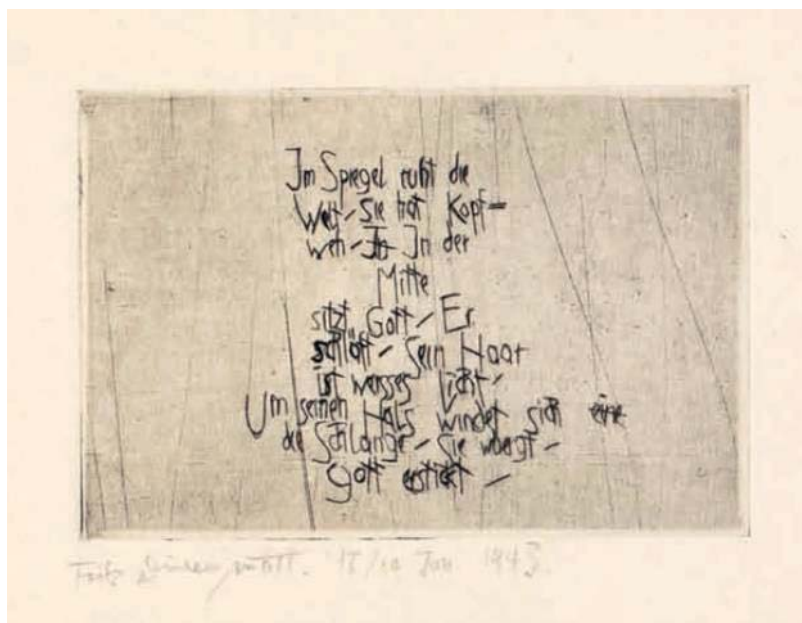 Im Spiegel ruht die
Welt – Sie hat Kopf=
weh – In der
Mitte
sitzt Gott – Er
schläft – Sein Haar
ist weisses Licht –
Um seinen Hals windet sich eine
die Schlange – Sie würgt –
Gott erstickt –
Fritz Dürrenmatt. Jan 1943.